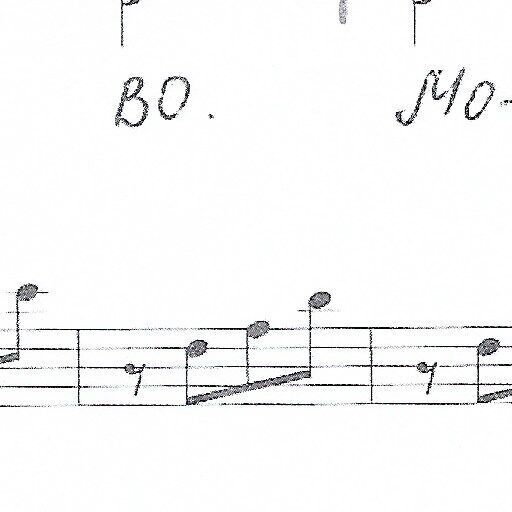 ВО. МО-